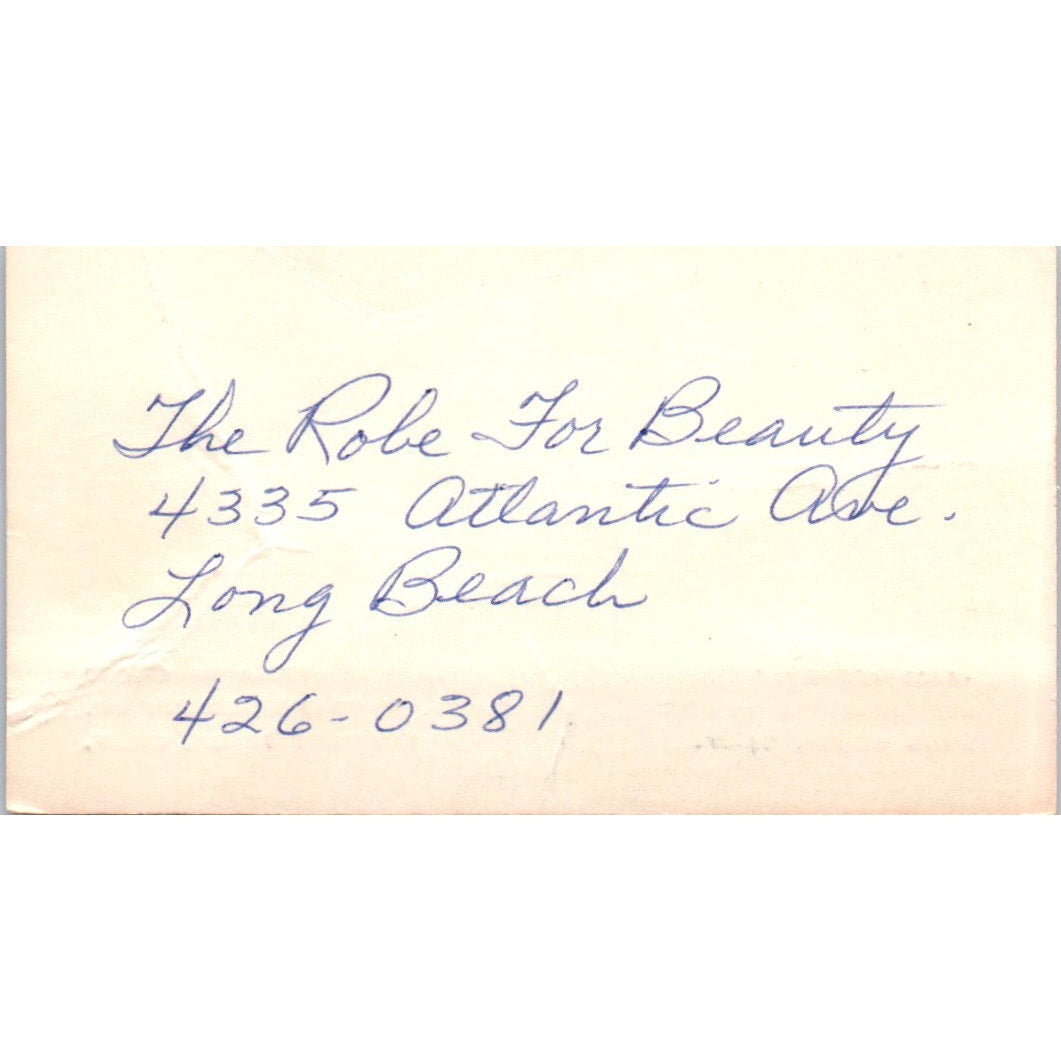 The Robe For Beauty
4335 Atlantic Ave.
Long Beach
426-0381